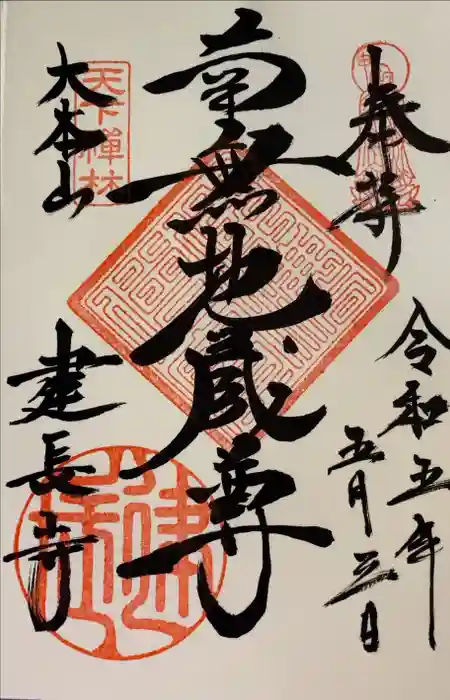 奉拝
令和五年
五月三日
南無地蔵尊
大本山
建長寺
天下禅林